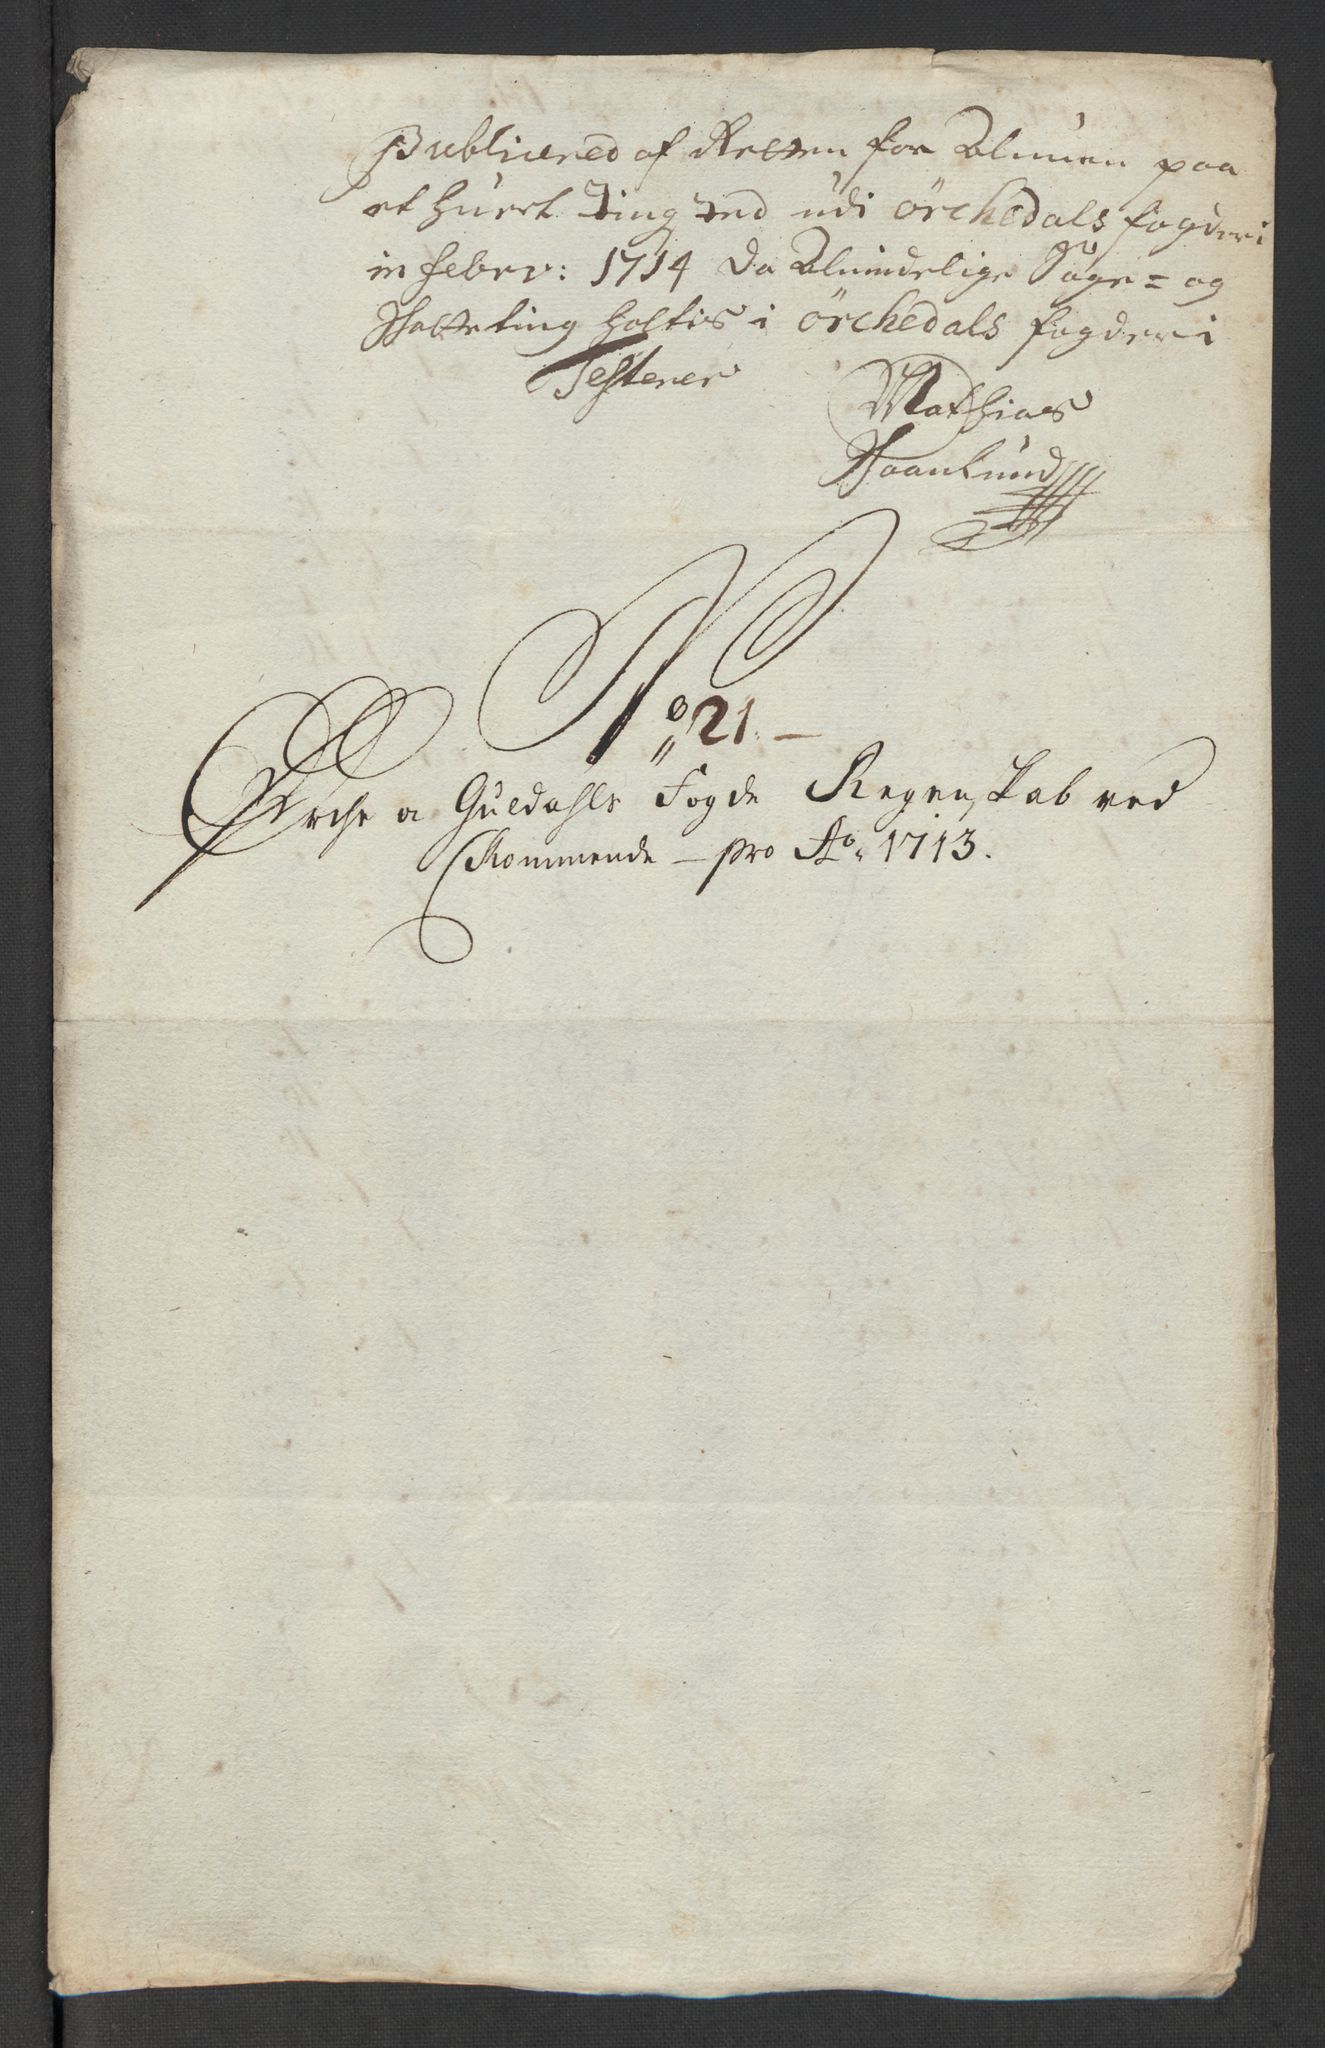 Publicered af Retten for Almuen paa
et huert Tingsted udi Örchedals fogderi
in Febrv: 1714 da Almindelige Sage= og
Skatteting holtis i Örchedals fogderi
Testerer
Mathias
No 21. –
Orche a Guldahls Fogde Regenskab ved
Kommende – pro Ao. 1713.